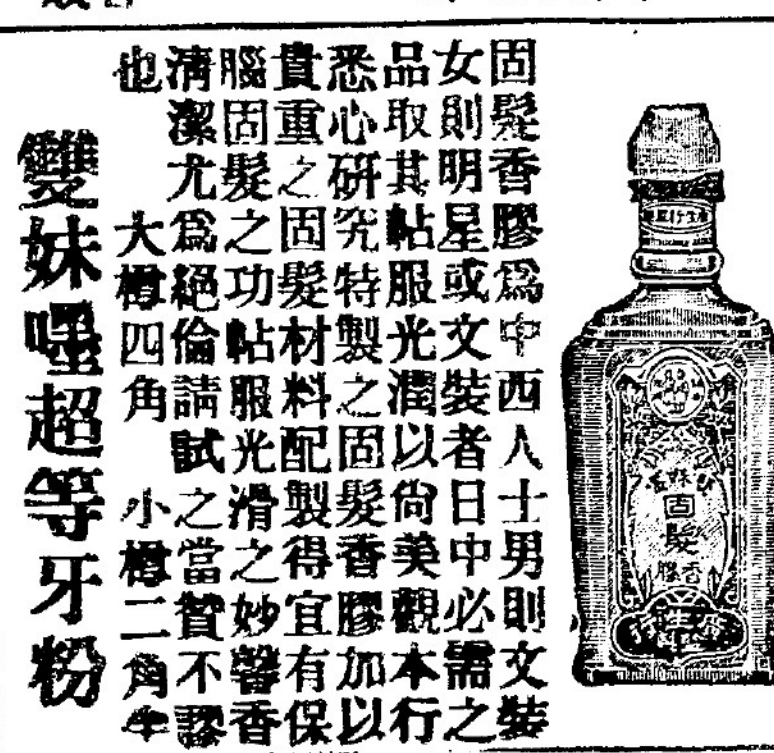 固髮香膠爲中西人士男則文裝
女則明星或文裝者日中必需之
品取其帖服光潤以尙美觀本行
悉心研究特製之固髮香膠加以
貴重之固髮材料配製得宜有保
腦固髮之功帖服光滑之妙馨香
清潔尤爲絕倫請試之當贊不謬
也
大樽四角 小樽二角半
雙妹嚜超等牙粉
固髮
香膠